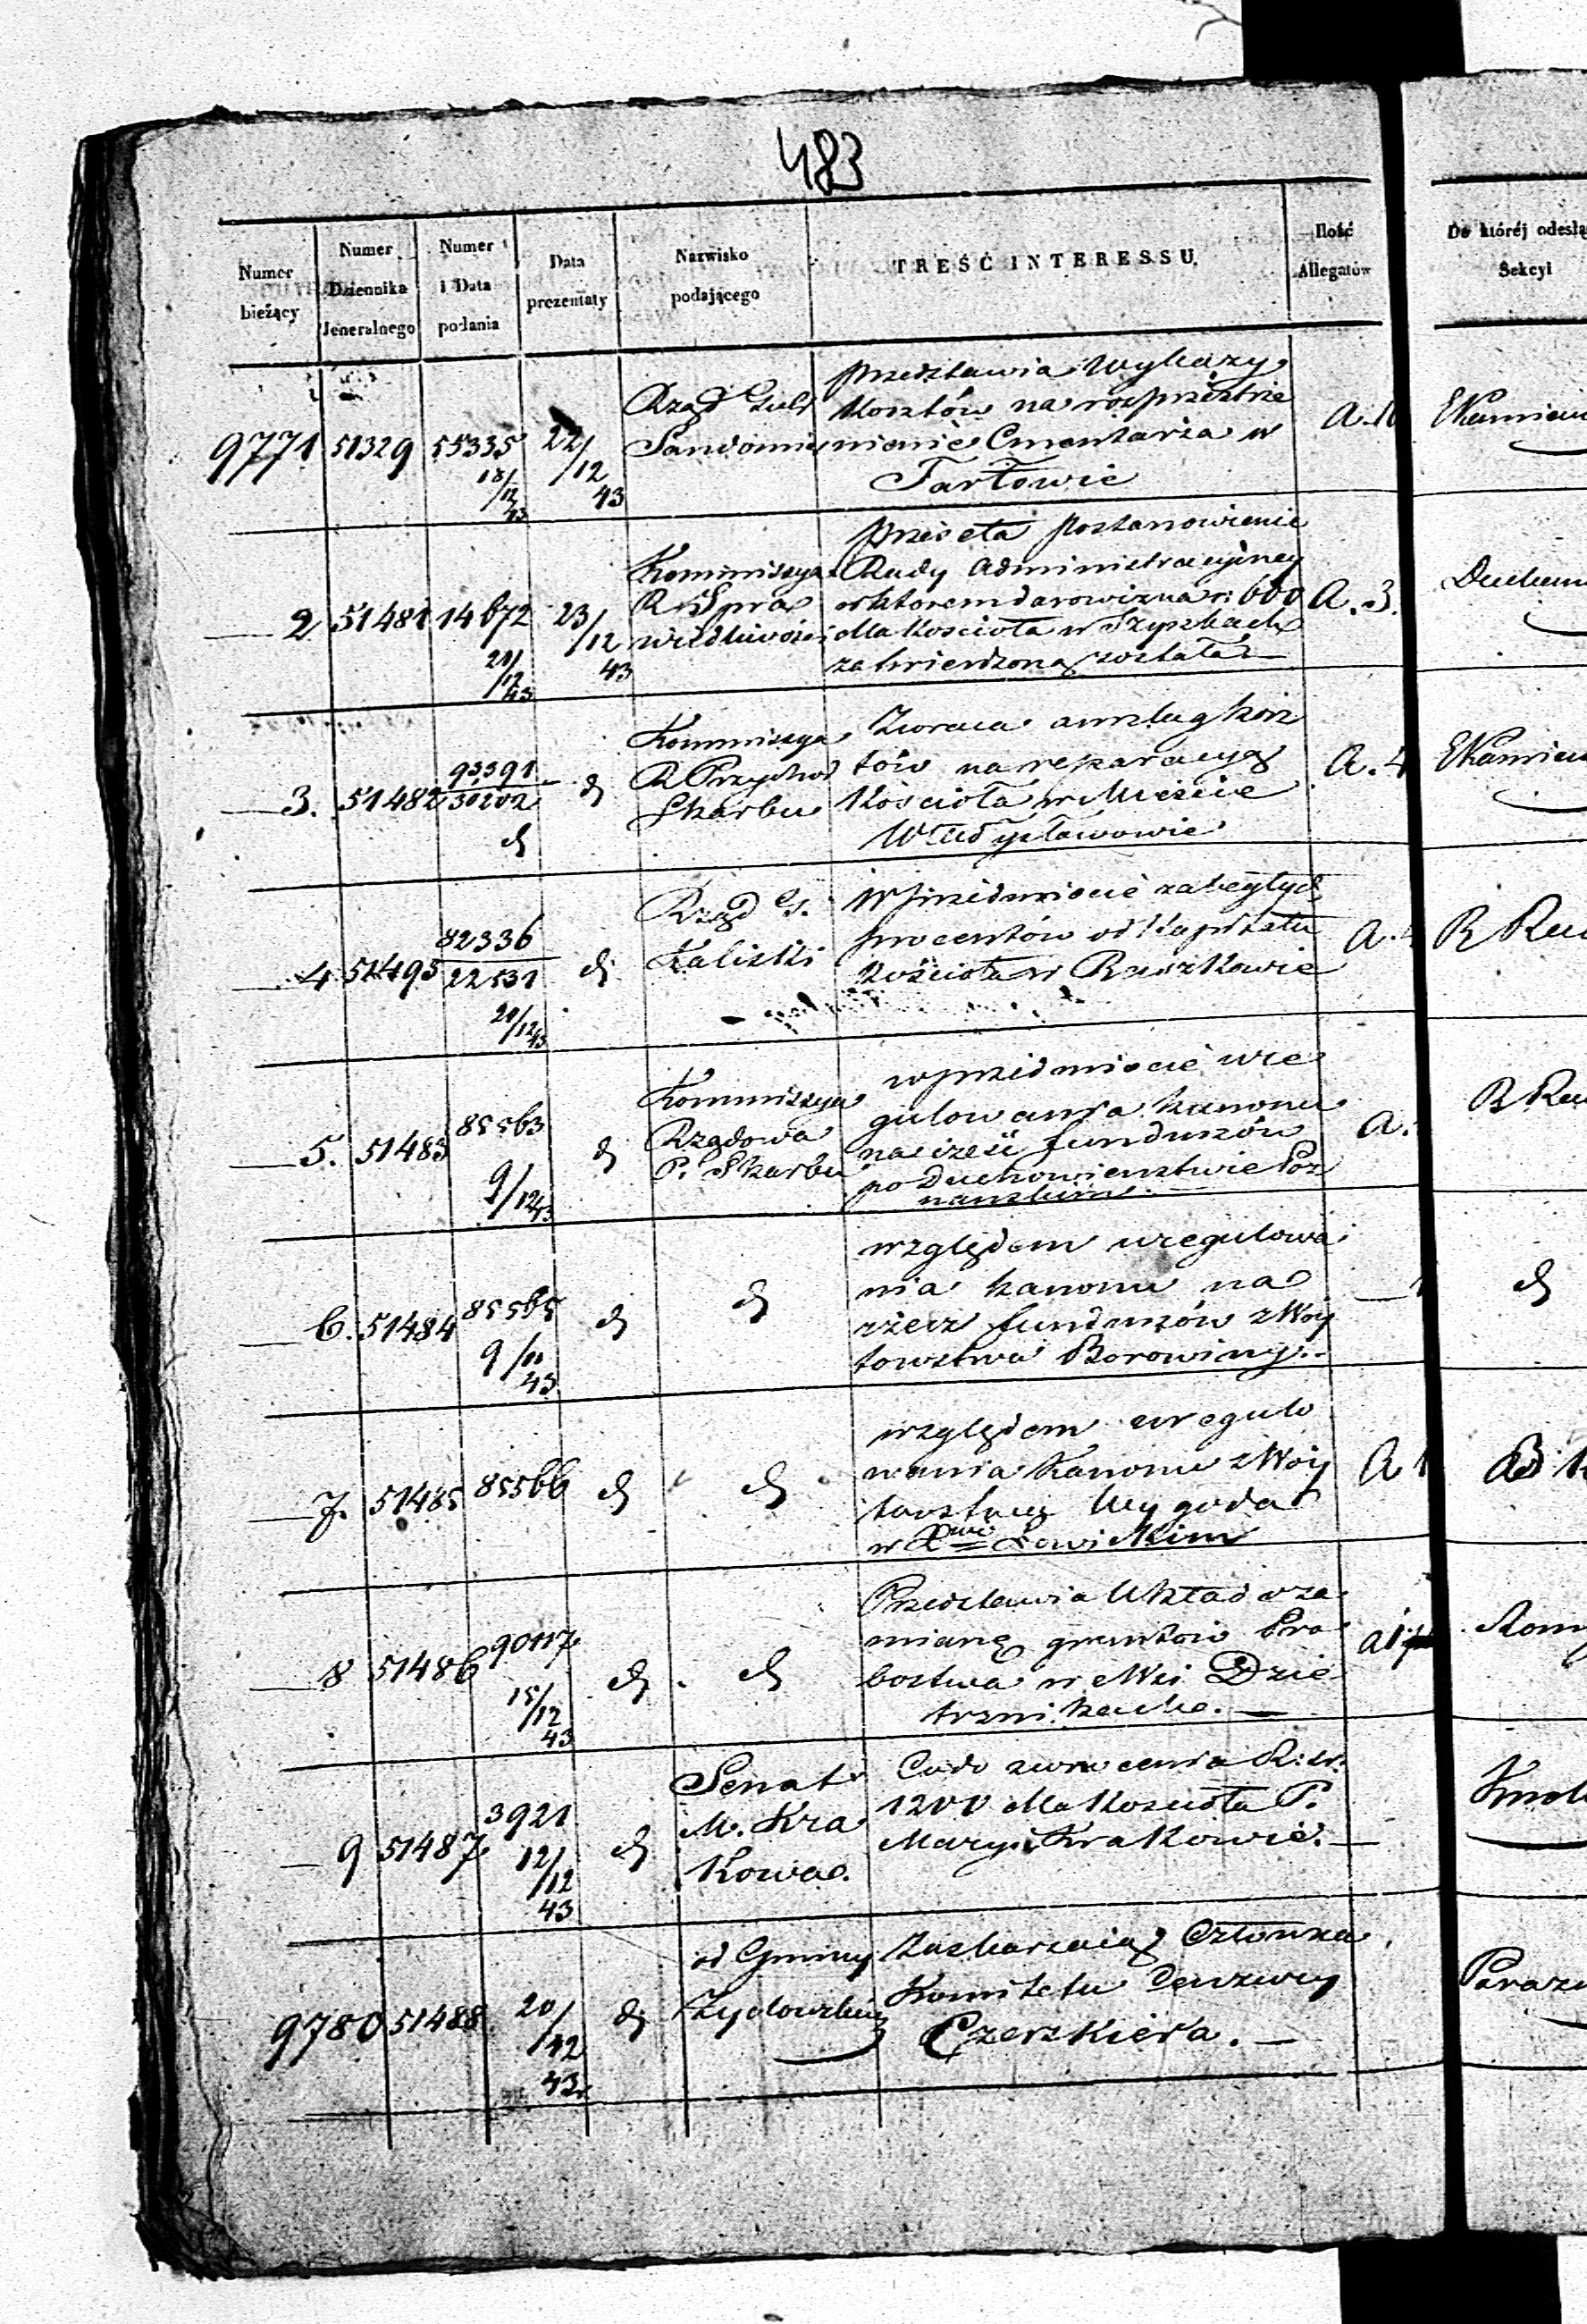 483
Numer bieżący | Numer Dziennika Jeneralnego | Numer i Data podania | Data prezentaty | Nazwisko podającego | TREŚĆ INTERESSU. | Ilość Allegatów | Do któréj odesła Sekcyi
9771 51329 55335 18/12 43 22/12 43
Rząd Gub
Sandomir
przedstawia Wykazy
Kosztów na rozprzestrze
nienié Cmentarza w
Tarłowie
2 51481 14672 21/12 43 23/12 43
Kommissya
R Spra
wiedliwości
przéseła postanowienie
Rady Administracyiney
darowizna 600
dla Kościoła w Szyszkach
zatwierdzona została
A. 3.
3. 51482 93391 30202 d
Kommissya
R Przych
Skarbu
Zwraca anszlag kosz
tów na reparacyą
Kościoła w Mieście
Władysławowie
A. 4
4 51495 82336 22531 21/12 43 d
Rząd G.
Kaliski
W przedmiocie zaległych
procentów od Kapitału
Kościoła w Ruszkowie
5. 51483 85563 9/12 43 d
Kommissya
Rządowa
P. Skarbu
w przedmiocie ure
gulowania kanonu
na rzecz funduszów
po Duchowieństwie Poz
nanskim
6. 51484 85565 9/11 43 d d
względem uregulowa
nia kanonu na
rzecz funduszów z Woy
towstwa Borowiny.
d
7. 51485 85566 d d
względem uregulo
wania Kanonu z Woy
towstwa Wygoda
w Xwie Łowickim
8 51486 90117 15/12 43 d d
Przedstawia Układ o za
mianę gruntów Pro
bostwa w Wsi Dzie
trznikach.
9 51487 3921 12/12 43 d
Senat
M. Kra
kowa.
Co do zwrócenia R: sr.
1200 dla Kościoła P.
Maryi Krakowie.
9780 51488 20/12 43 d
od Gminy
Żydowskiey
Zaskarzaią Członka
Komitetu
Czerskiera.